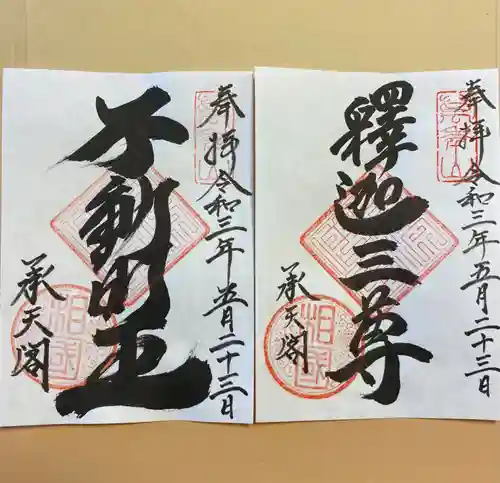 奉拝 令和三年五月二十三日
釋迦三尊
承天閣
相国
奉拝 令和三年五月二十三日
不動明王
承天閣
相国